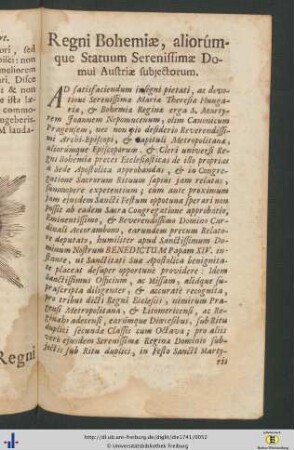 Regni Bohemiæ, aliorúm-
que Statuum Serenissimæ Do-
mui Austriæ subjectorum.
AD satisfaciendum insigni pietati, ac devo-
tioni Serenissimæ Mariæ Theresiæ Hunga-
riæ, & Bohemiæ Reginæ erga S. Martyr-
rem Joannem Nepomucenum, olim Canonicum
Pragensem, nec non pio desiderio Reverendissi-
mi Archi-Episcopi, & Capituli Metropolitani,
aliorúmque Episcoporum & Cleri universi Re-
gni Bohemiæ preces Ecclesiasticas de illo proprias
à Sede Apostolica approbandas, & in Congre-
gatione Sacrorum Rituum sæpius jam relatas,
summopere expetentium; cùm ante proximum
jam ejusdem Sancti Festum opportunè sperari non
possit ab eadem Sacra Congregatione approbatio,
Eminentissimo, & Reverendissimo Domino Car-
dinali Accorambono, earundem precum Relato-
re deputato, humiliter apud Sanctissimum Do-
minum Nostrum BENEDICTUM Papam XIV. in-
stante, ut Sanctitati Suæ Apostolica benignita-
te placeat desuper opportunè providere: Idem
Sanctissimus Officium, ac Missam, aliáque su-
prascripta diligenter, & accuratè recognita,
pro tribus dicti Regni Ecclesiis, nimirum Pra-
gensi Metropolitana, & Litomericensi, ac Re-
ginæhradecensi, earúmque Diœcesibus, sub Ritu
duplici secundæ Classis cum Octava; pro aliis
verò ejusdem Serenissimæ Reginæ Dominio sub-
jectis sub Ritu duplici, in Festo Sancti Marty-
ris
Regni
http://dl.ub.uni-freiburg.de/diglit/die1741/0052